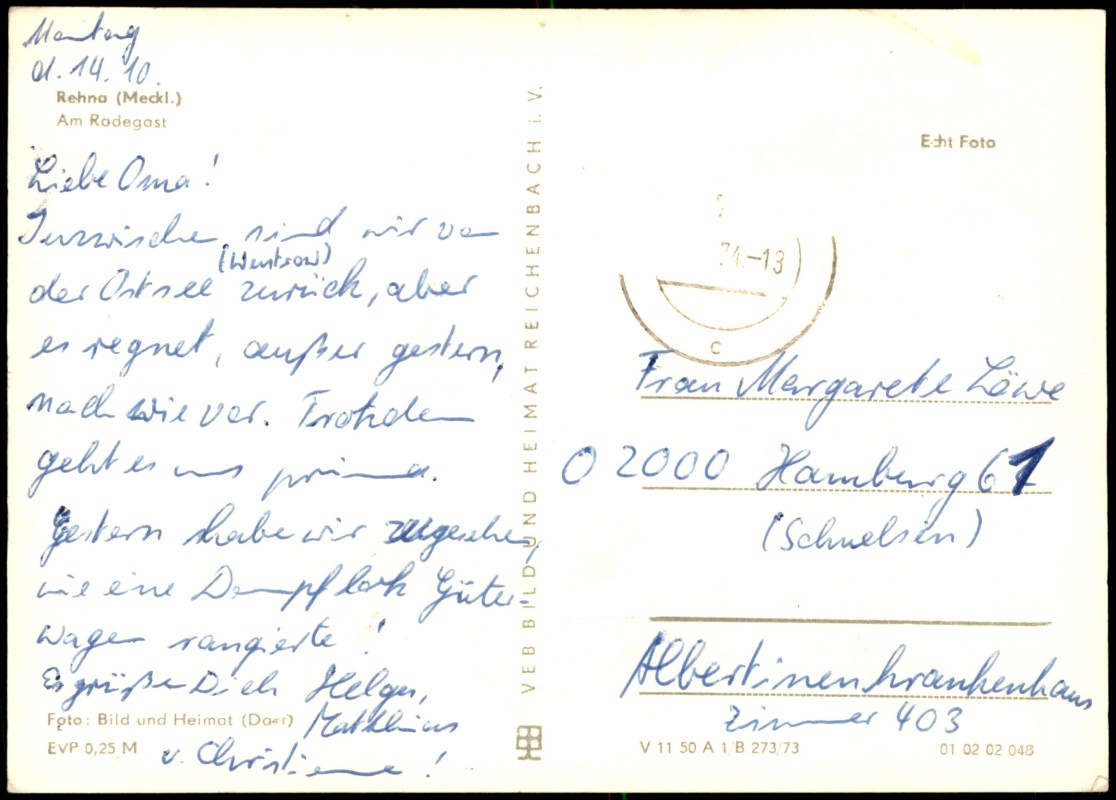 Montag
d. 14.10.
Rehna (Meckl.)
Am Radegast
Liebe Oma!
Inzwischen sind wir von
(Wustrow)
der Ostsee zurück, aber
es regnet, außer gestern,
nach wie vor. Trotzdem
geht es uns prima.
Gestern habe wir zugesehen,
wie eine Dampflok Güter-
wagen rangierte!
Es grüßen Dich Helga,
Matthias
u. Christiane!
Foto: Bild und Heimat (Darr)
EVP 0,25 M
VEB BILD UND HEIMAT REICHENBACH i. V.
Echt Foto
74.-13
c
Frau Margarete Löwe
O 2000 Hamburg 61
(Schnelsen)
Albertinenkrankenhaus
Zimmer 403
V 11 50 A 1/B 273/73
01 02 02 048